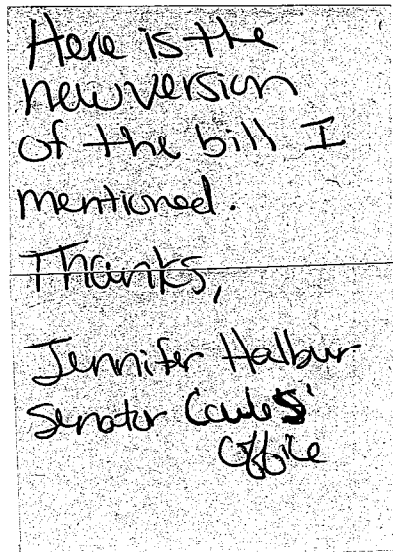 Here is the
new version
of the bill I
mentioned.
Thanks,
Jennifer Halbur
Senator
Office